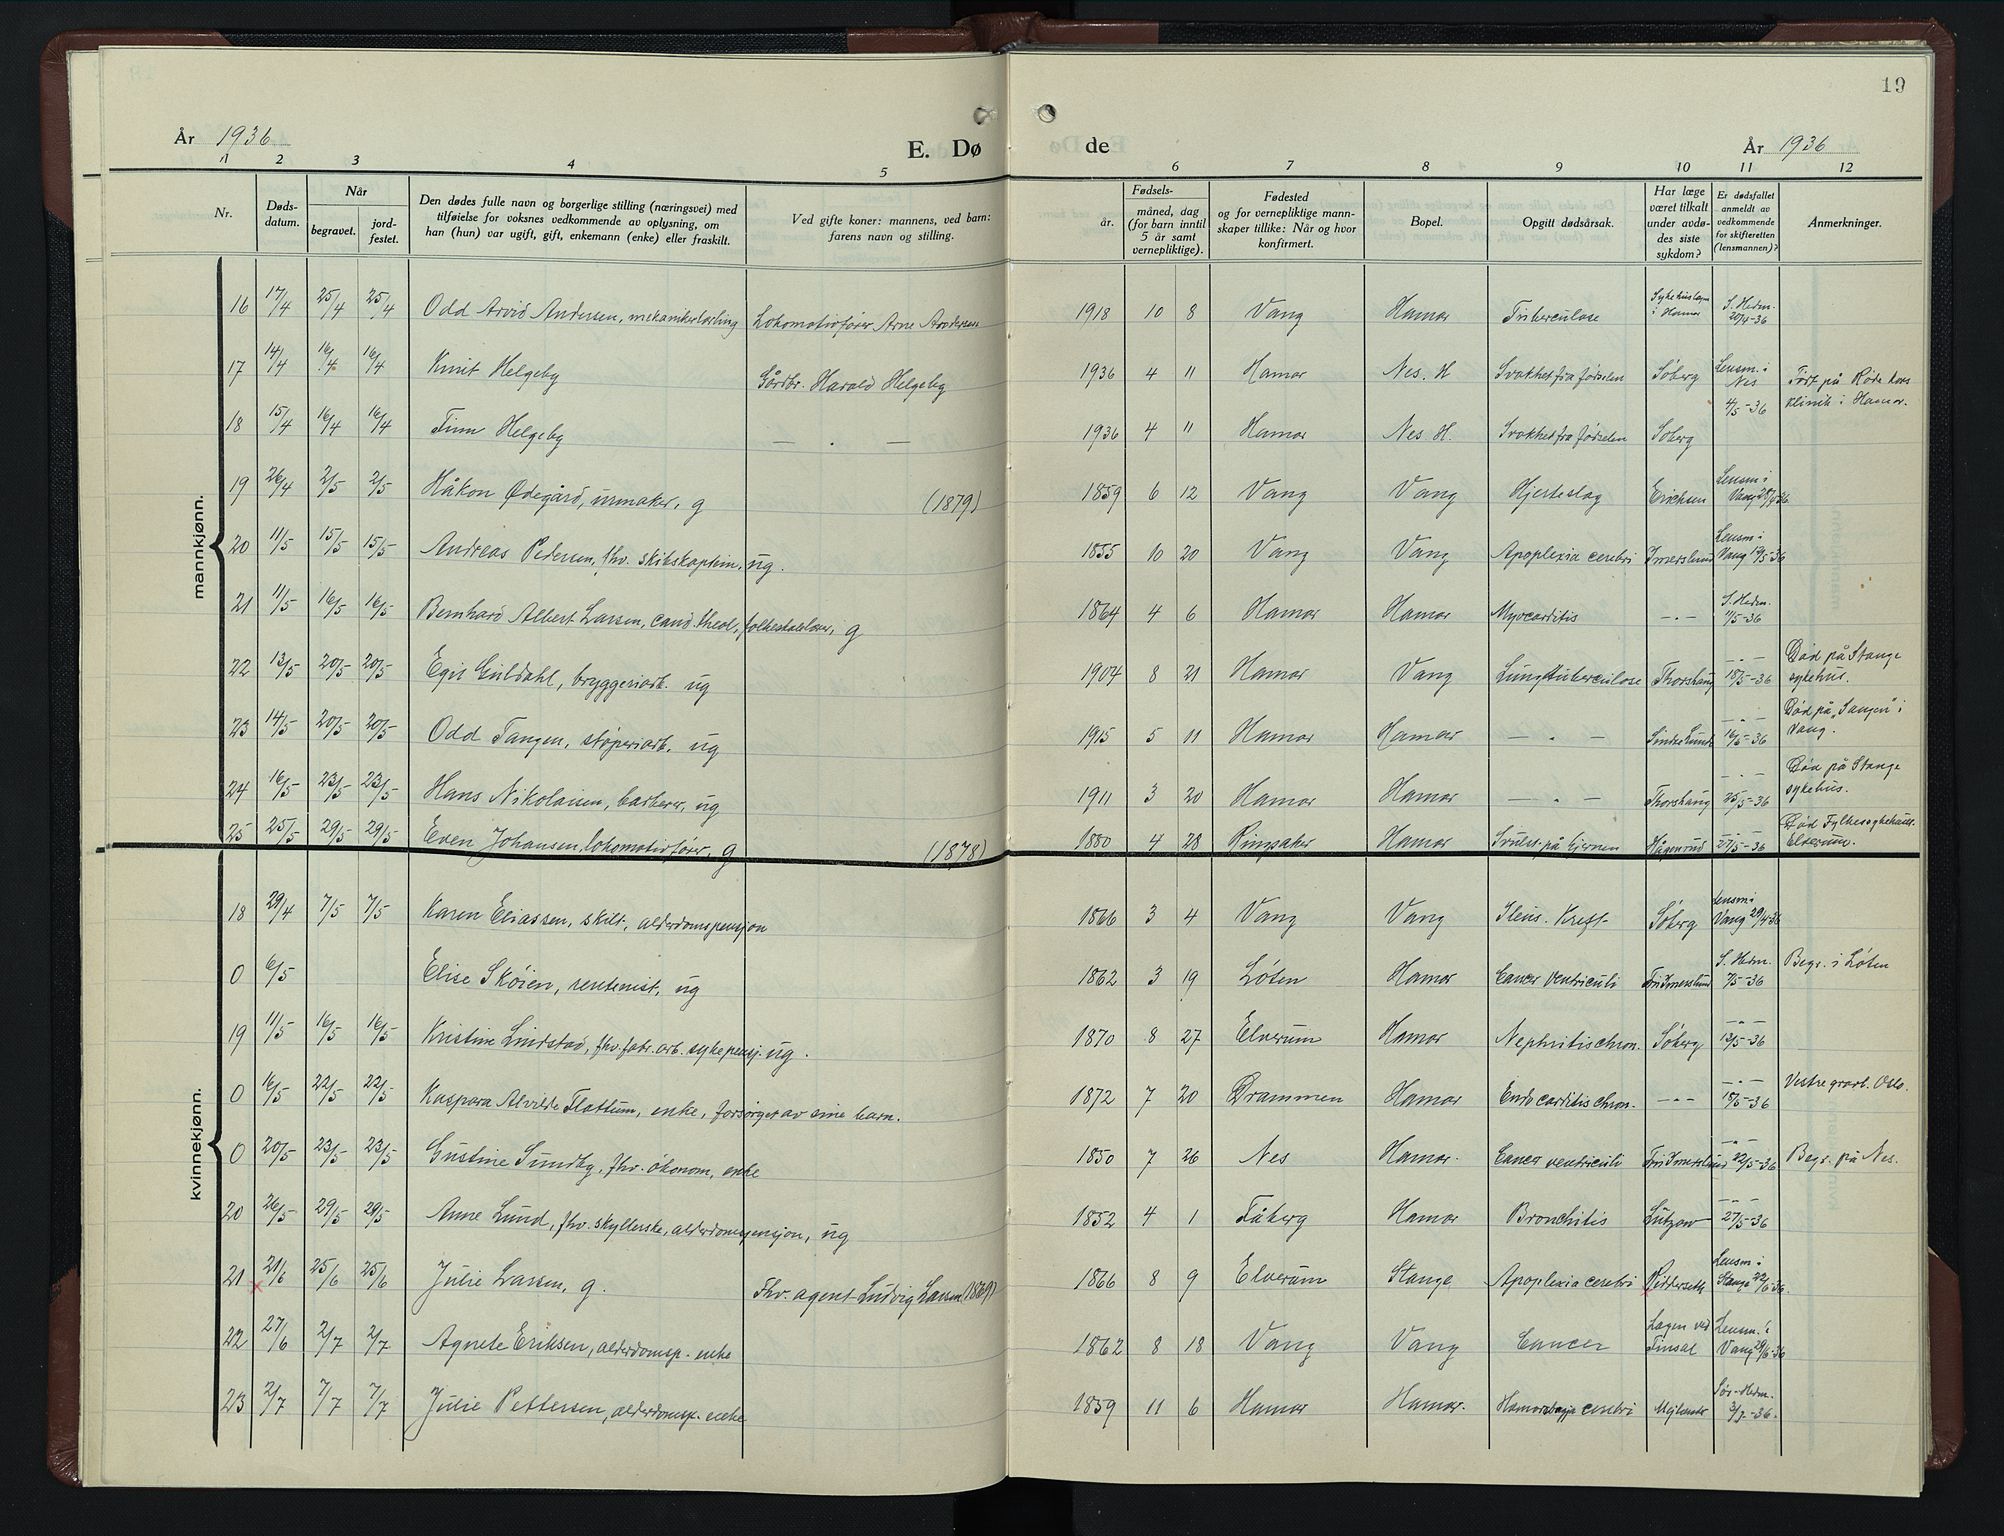 19
År 1936
E. Dø
de
År 1936
1 2 3 4 5 6 7 8 9 10 11 12
Nr.
Døds-
datum.
Når
begravet.
jord-
festet.
Den dødes fulle navn og borgerlige stilling (næringsvei) med
tilføielse for voksnes vedkommende av oplysning, om
han (hun) var ugift, gift, enkemann (enke) eller fraskilt.
Ved gifte koner: mannens, ved barn:
farens navn og stilling.
Fødsels-
år.
måned, dag
(for barn inntil
5 år samt
vernepliktige).
Fødested
og for vernepliktige mann-
skaper tillike: Når og hvor
konfirmert.
Bopel.
Opgitt dødsårsak.
Har læge
været tilkalt
under avdø-
des siste
sykdom?
Er dødsfallet
anmeldt av
vedkommende
for skifteretten
(lensmannen)?
Anmerkninger.
mannkjønn.
16 17/4 25/4 25/4 Odd Arvid Andersen, mekanikerlærling Lokomotivfører Arne Andersen 1918 10 8 Vang Hamar Tuberculose Sykehuslægen i Hamar S. Hedm. 20/4-36
17 14/4 16/4 16/4 Knut Helgeby Gårdbr. Harald Helgeby 1936 4 11 Hamar Nes. H Svakhet fra fødselen Søberg Lensm. i Nes 4/5-36 Født på Røde kors klinik i Hamar.
18 15/4 16/4 16/4 Finn Helgeby — . — 1936 4 11 Hamar Nes. H. Svakhet fra fødselen Søberg
19 26/4 2/5 2/5 Håkon Ødegård, urmaker, g (1879) 1859 6 12 Vang Vang Hjerteslag Erichsen Lensm i Vang 28/4-36
20 11/5 15/5 15/5 Andreas Pedersen, fhv. skibskaptein, ug. 1855 10 20 Vang Vang Apoplexia cerebri Imerslund Lensm i Vang 12/5-36
21 11/5 16/5 16/5 Bernhard Albert Larsen, cand. theol, folkeskolelærer, g 1864 4 6 Hamar Hamar Myocarditis — . — S. Hedm. 11/5-36
22 13/5 20/5 20/5 Egil Guldahl, bryggeriarb. ug 1904 8 21 Hamar Vang Lungetuberculose Thorshaug — . — 18/5-36 Død på Stange sykehus.
23 14/5 20/5 20/5 Odd Tangen, støperiarb. ug 1915 5 11 Hamar Hamar — . — — . — 16/5-36 Død på "Sangen" i Vang.
24 16/5 23/5 23/5 Hans Nikolaisen, barberer, ug 1911 3 20 Hamar Hamar — . — Thorshaug — . — 25/5-36 Død på Stange sykehus.
25 25/5 29/5 29/5 Even Johansen, lokomotivfører, g (1878) 1880 4 28 Ringsaker Hamar Svulst på hjernen Hågenrud — . — 27/5-36 Død Fylkessykehuset Elverum.
kvinnekjønn.
18 29/4 7/5 7/5 Karen Eliassen, skilt, alderdomspensjon 1866 3 4 Vang Vang Ileus. Kreft Søberg Lensm i Vang 29/4-36
0 6/5 Elise Skøien, rentenist, ug 1862 3 19 Løten Hamar Cancer ventriculi Fru Imerslund S. Hedm. 7/5-36 Begr. i Løten
19 11/5 16/5 16/5 Kristine Lindstad, fhv. fabr. arb. sykepensj. ug. 1870 8 27 Elverum Hamar Nephritis chron. Søberg — . — 13/5-36
0 16/5 22/5 22/5 Kaspara Alvilde Flattum, enke, forsørget av sine barn. 1872 7 20 Drammen Hamar Endocarditis chron. — . — — . — 18/5-36 Vestre gravl. Oslo.
0 20/5 23/5 23/5 Gustine Sundby, fhv. økonom, enke 1850 7 26 Nes Hamar. Cancer ventriculi Fru Imerslund — . — 22/5-36 Begr. på Nes.
20 26/5 29/5 29/5 Anne Lund, fhv. skyllerske, alderdomspensjon, ug 1852 4 1 Fåberg Hamar Bronchitis Lützow — . — 27/5-36
21 21/6 25/6 25/6 Julie Larsen, g. Fhv. agent Ludvig Larsen (1869) 1866 8 9 Elverum Stange Apoplexia cerebri Ridderseth Lensm i Stange 22/6-36.
22 27/6 2/7 2/7 Agnete Eriksen, alderdomsp. enke 1862 8 18 Vang Vang Cancer Lægen ved Finsal Lensm. i Vang 29/6-36
23 2/7 7/7 7/7 Julie Pettersen, alderdomsp. enke 1859 11 6 Hamar Hamar. cerebri Sør-Hedm. 3/7-36.